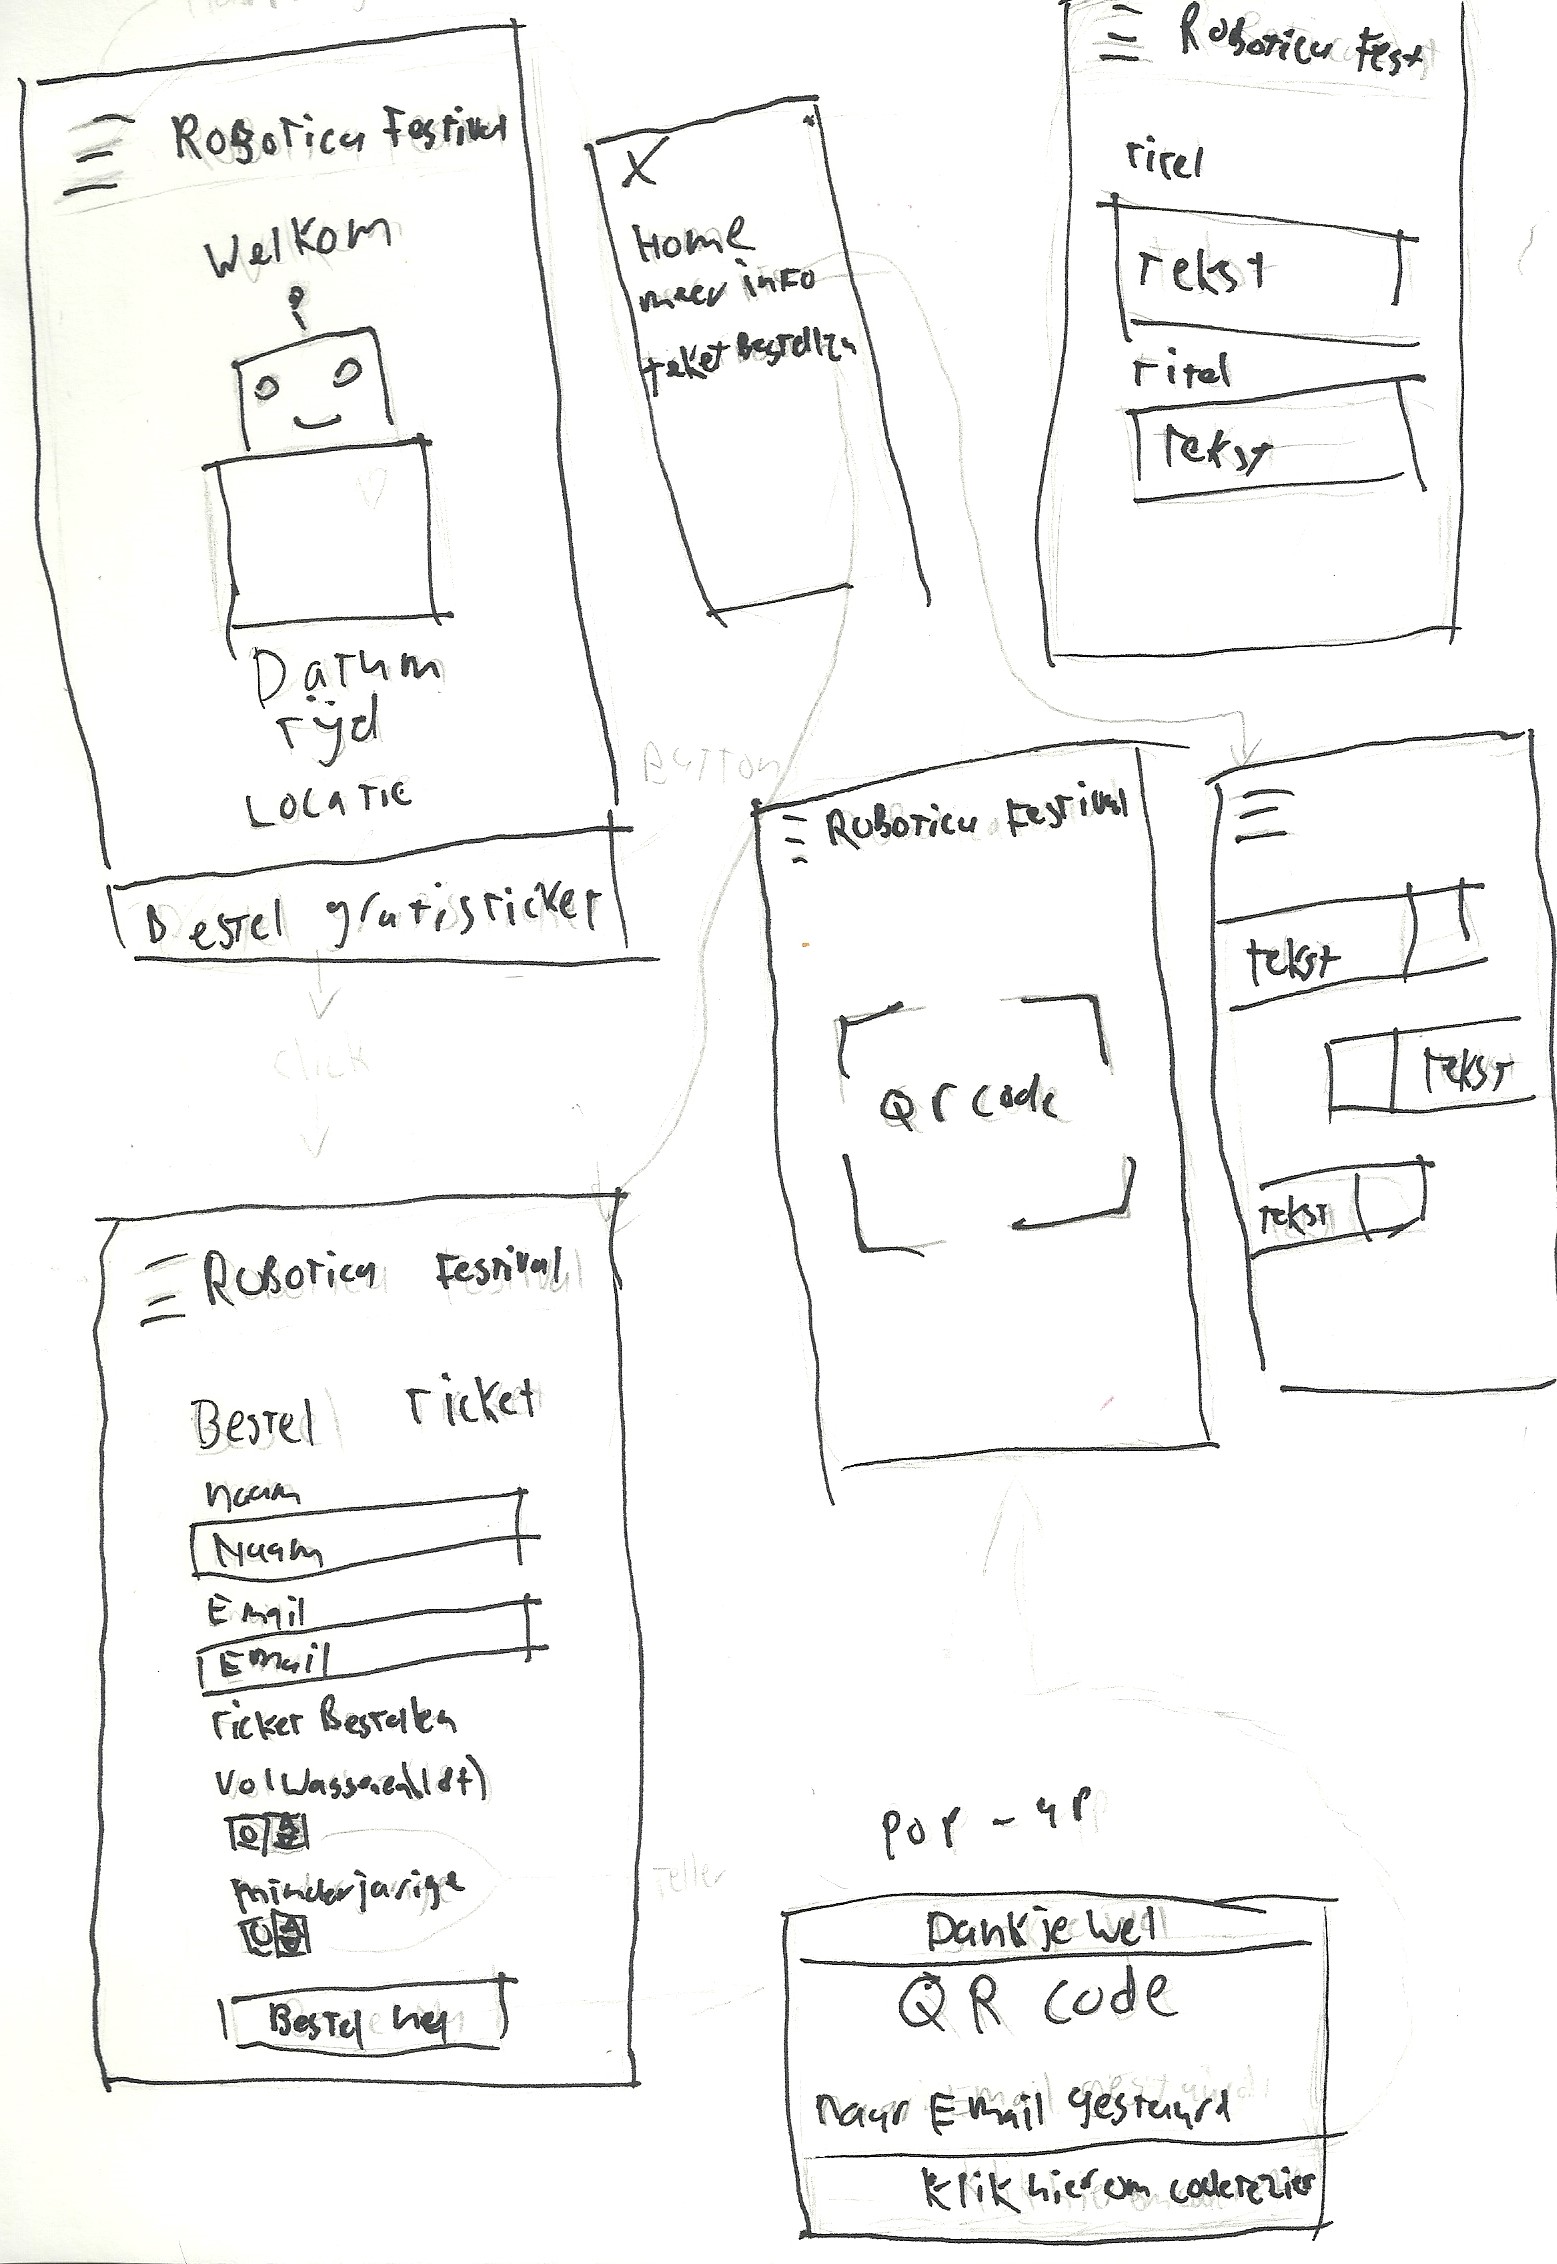 Robotica Festival
Welkom
Datum
Tijd
Locatie
Bestel gratis ticket
X
Home
meer info
teket Bestellen
Robotica Fest
Titel
Tekst
Titel
Tekst
Button
Robotica Festival
QR code
tekst
Tekst
Tekst
click
Robotica Festival
Bestel Ticket
Naam
Naam
Email
Email
Ticket Bestellen
Volwassenen(18+)
0
Minderjarige
0
Teller
Bestel nu
POP-UP
Dankjewel
QR code
naar Email gestuurd
Klik hier om code te zien